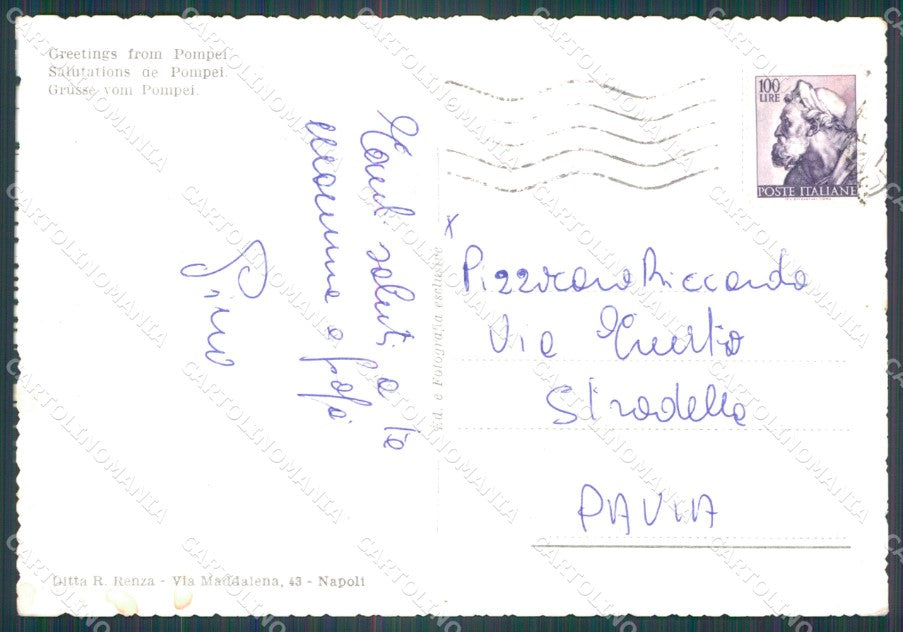 Greetings from Pompei.
Salutations de Pompei.
Grüsse vom Pompei.
100
LIRE
POSTE ITALIANE
Tanti saluti a te
mamma e papà
Pino
Ed. e Fotografia esclusiva
x
Riccardo
Via
Stradella
PAVIA
Ditta R. Renza - Via Maddalena, 43 - Napoli
CARTOLINOMANIA